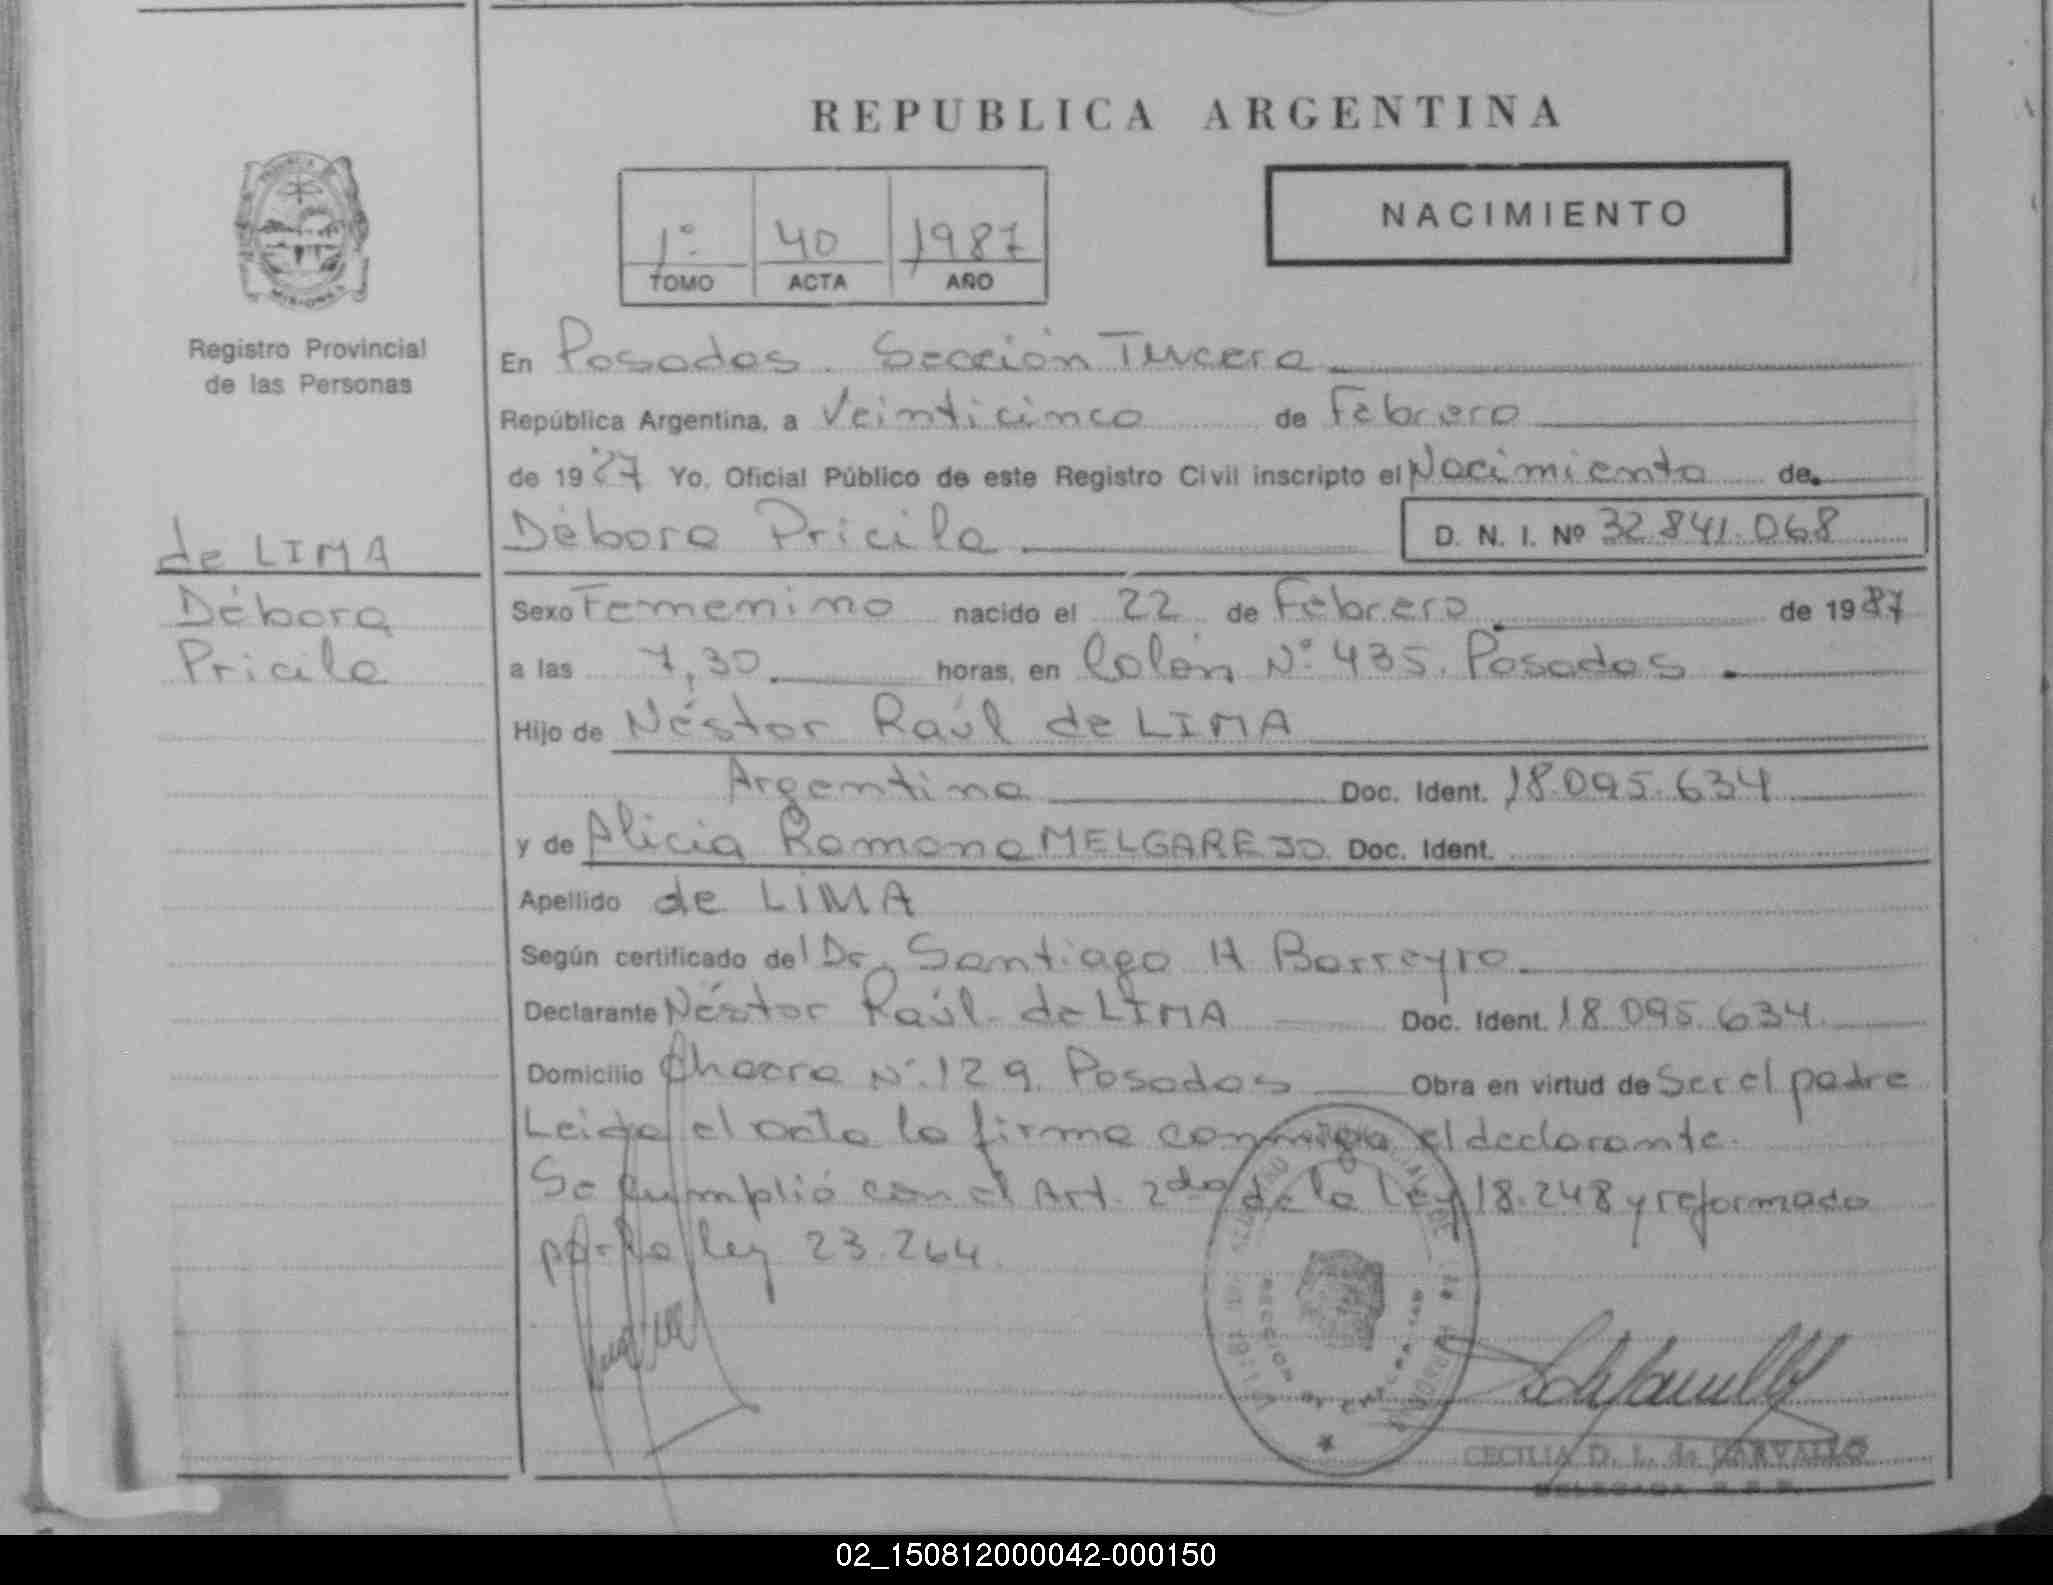 REPUBLICA ARGENTINA
NACIMIENTO
1º 40 1987
TOMO ACTA AÑO
MISIONES
Registro Provincial
de las Personas
En Posadas. Sección Tercera
República Argentina, a Veinticinco de Febrero
de 1987 Yo, Oficial Público de este Registro Civil inscripto el Nacimiento de
Débora Pricila D. N. I. Nº 32.841.068
de LIMA
Débora
Pricila
Sexo Femenino nacido el 22 de Febrero de 1987
a las 7,30 horas, en Colón Nº 435. Posadas
Hijo de Néstor Raúl de LIMA
Argentino Doc. Ident. 18.095.634
y de Alicia Ramona MELGAREJO Doc. Ident.
Apellido de LIMA
Según certificado del Dr. Santiago H Barreyro
Declarante Néstor Raúl de LIMA Doc. Ident. 18.095.634
Domicilio Chacra Nº 129. Posadas Obra en virtud de Ser el padre
Leida el acta la firma conmigo el declarante.
Se cumplió con el Art. 2do de la Ley 18.248 y reformado
por la ley 23.264.
CECILIA D. L. de CARVALLO
02_150812000042-000150